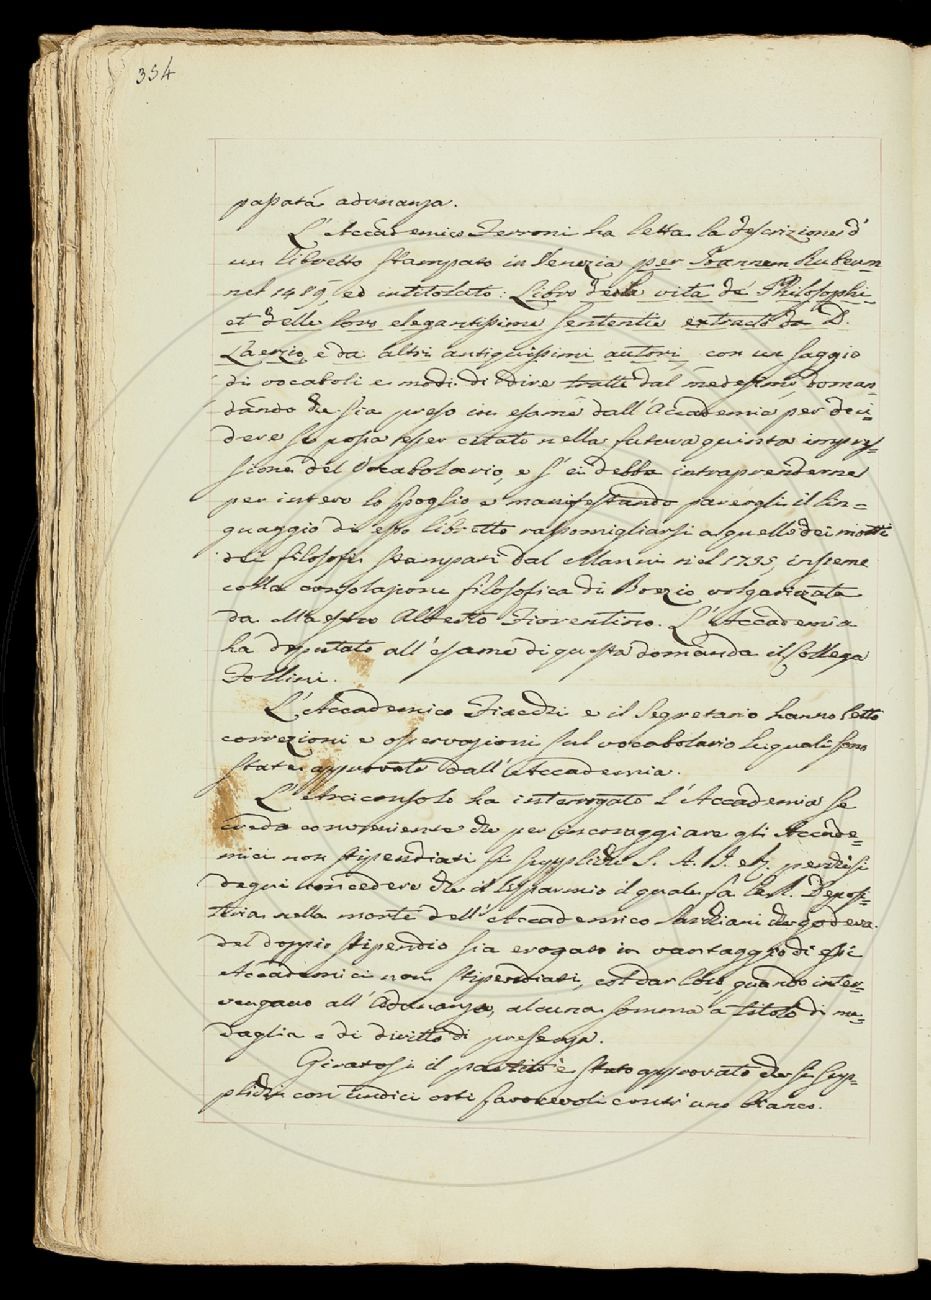 354
passata adunanza.
L'Accademico Ferroni ha letta la descrizione d'
un libretto stampato in Venezia per Ioannem Rubeum
nel 1489, ed intitolato: Libro de la vita de' Philosophi
et delle loro elegantissime sententie extracto da D.
Laerzio e da altri antiquissimi autori, con un saggio
di vocaboli e modi di dire tratti dal medesimo, doman=
dando che sia preso in esame dall'Accademia per deci=
dere se possa esser citato nella futura quinta impres=
sione del Vocabolario, e s'ei debba intraprenderne
per intero lo spoglio e manifestando parergli il lin=
guaggio di esso libretto rassomigliarsi a quello dei motti
dei filosofi stampati dal Manni nel 1735, insieme
colla consolazione filosofica di Boezio volgarizzata
da Maestro Alberto Fiorentino. L'Accademia
ha deputato all'esame di questa domanda il Collega
Follini.
L'Accademico Fiacchi e il Segretario hanno letto
correzioni e osservazioni sul vocabolario le quali sono
state approvate dall'Accademia.
L'Arciconsolo ha interrogato l'Accademia se
creda conveniente che per incoraggiare gli Accade=
mici non stipendiati si supplichi S. A. I. et. perchè si
degni concedere che il risparmio il quale fa la R. Deposi=
teria nella morte dell'Accademico Sarchiani che godeva
del doppio stipendio sia erogato in vantaggio di essi
Accademici non stipendiati, col dar loro, quando inter=
vengano all'Adunanza, alcuna somma a titolo di me=
daglia e di diritto di presenza.
Giratosi il partito è stato approvato che si sup=
plichi con undici voti favorevoli contr'uno bianco.